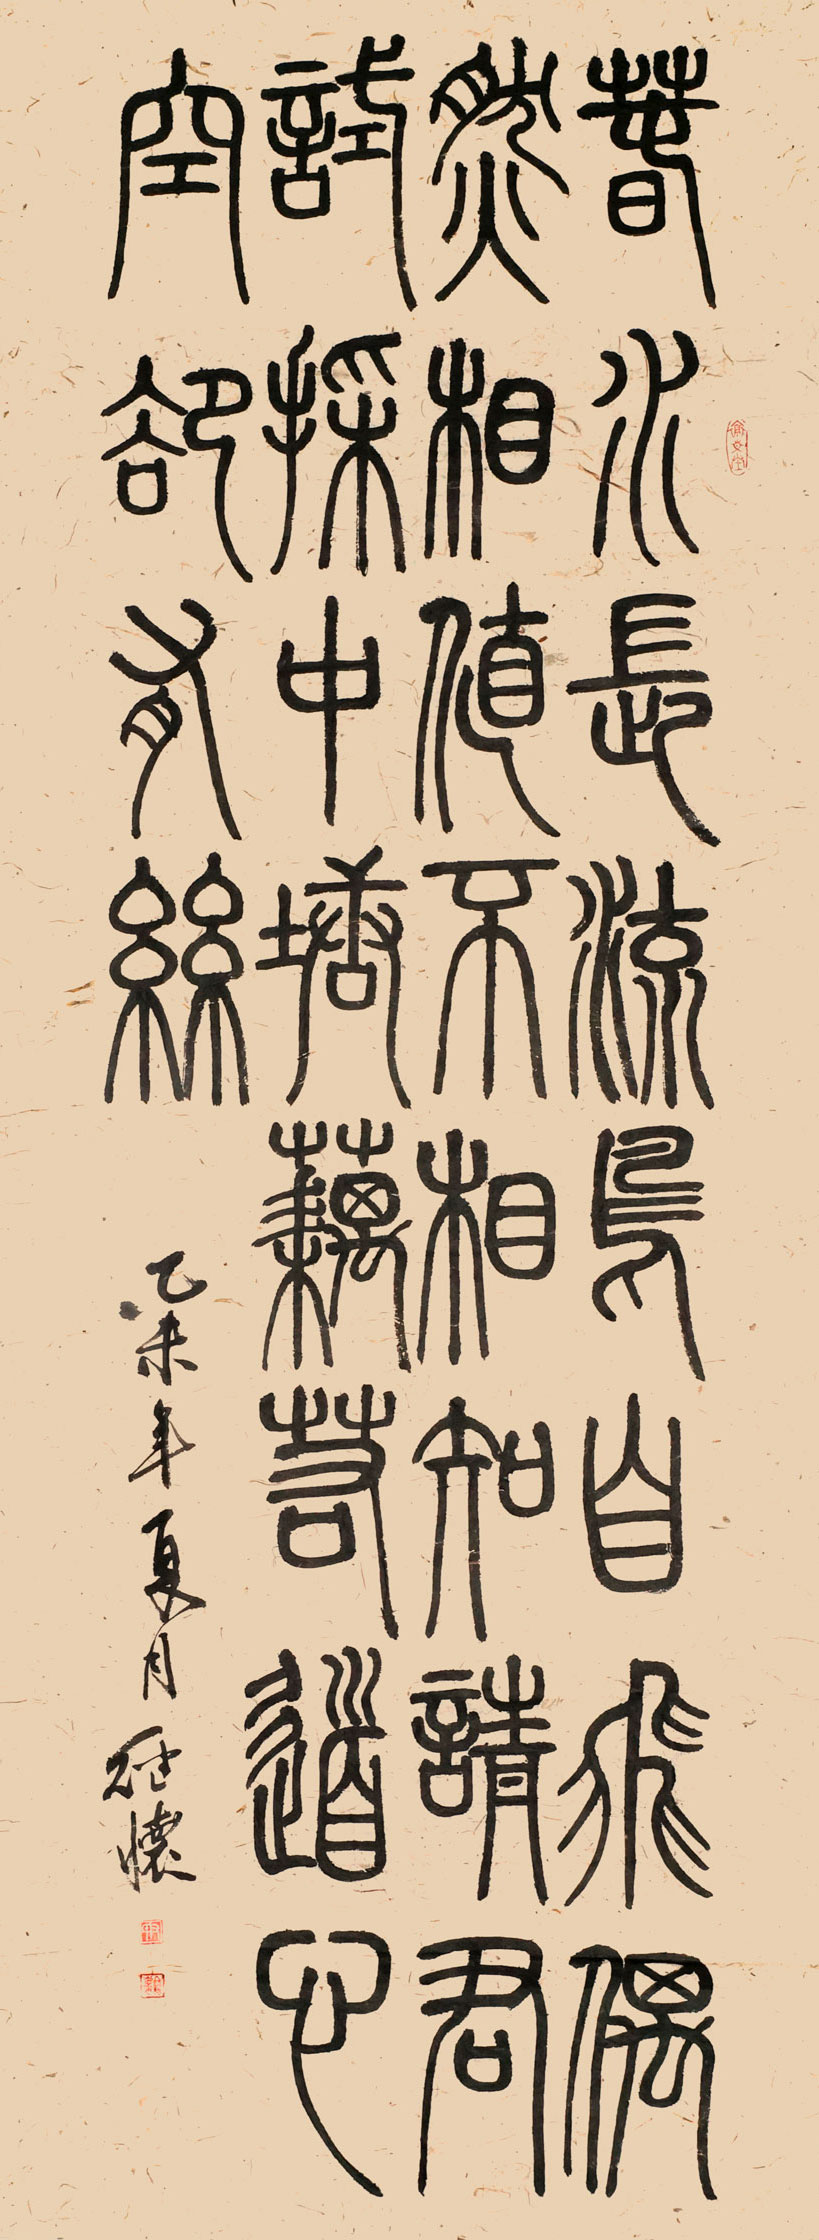 春水長流鳥自飛偶
然相値不相知請君
試採中塘藕若道心
空卻有絲
乙未年夏月懷